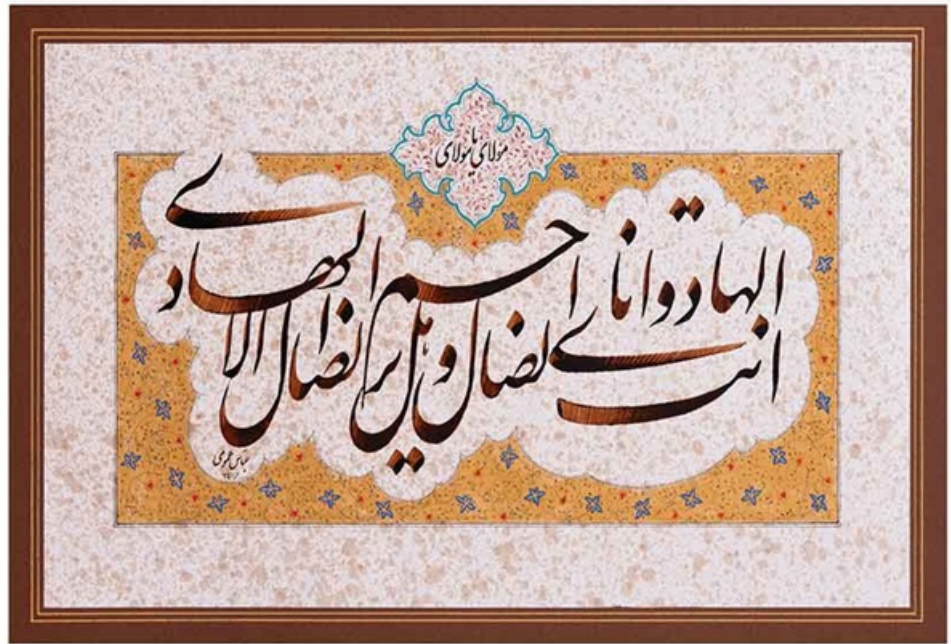 مولای یا مولای
انت الهادی و انا الضال و هل یرحم الضال الا الهادی
عباس